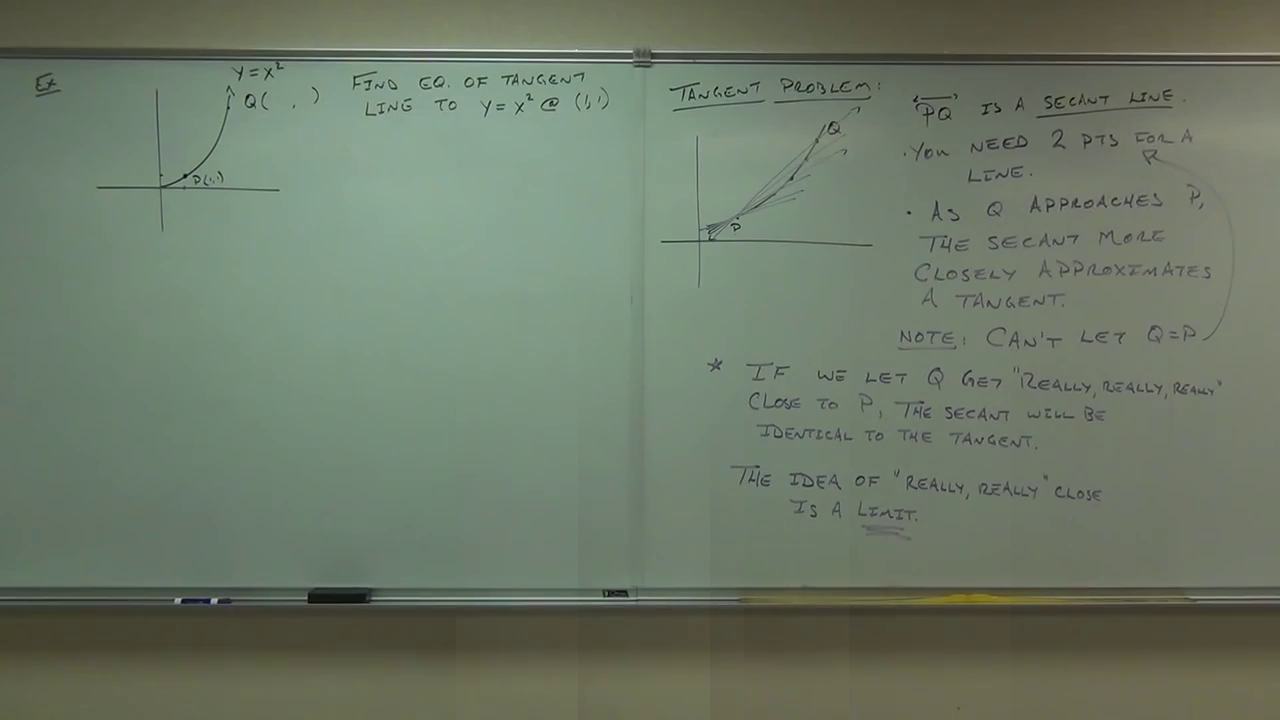 Ex
y = x²
Q( , )
P(1,1)
FIND EQ. OF TANGENT
LINE TO y = x² @ (1,1)
TANGENT PROBLEM:
Q
P
PQ IS A SECANT LINE.
• YOU NEED 2 PTS FOR A
LINE.
• AS Q APPROACHES P,
THE SECANT MORE
CLOSELY APPROXIMATES
A TANGENT.
NOTE: CAN'T LET Q=P
* IF WE LET Q GET "REALLY, REALLY, REALLY"
CLOSE TO P, THE SECANT WILL BE
IDENTICAL TO THE TANGENT.
THE IDEA OF "REALLY, REALLY" CLOSE
IS A LIMIT.